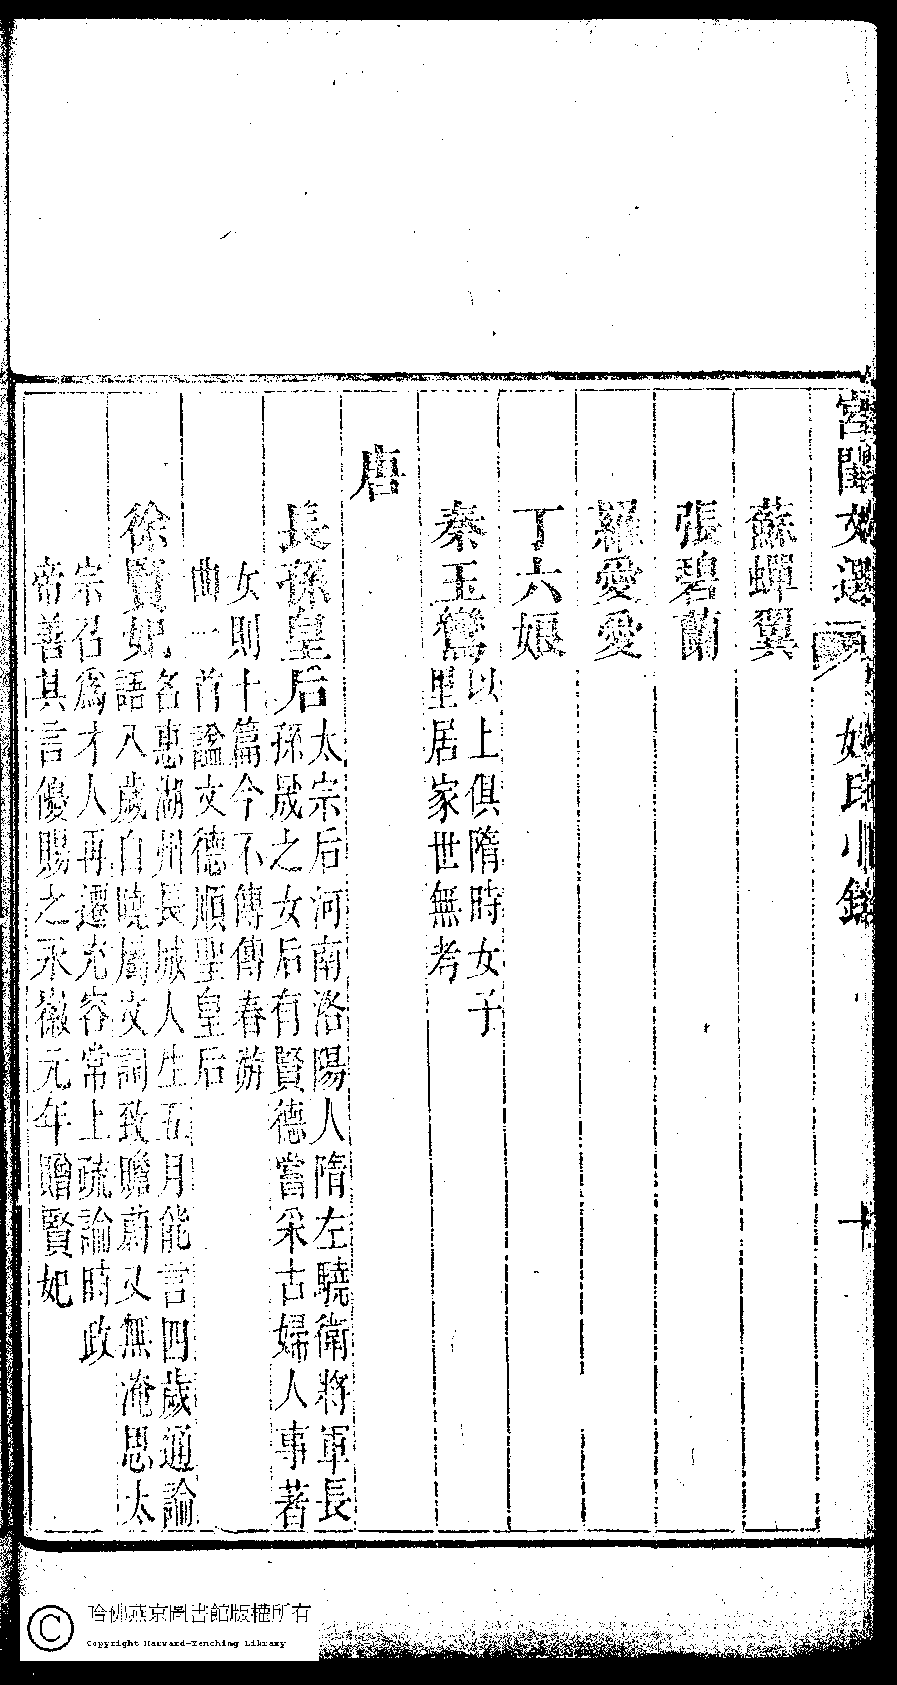 宮閨文選 姓氏小錄 十
蘇蟬翼
張碧蘭
羅愛愛
丁六娘
秦玉鸞以上俱隋時女子
里居家世無考
唐
長孫皇后太宗后河南洛陽人隋左驍衛將軍長
孫晟之女后有賢德嘗采古婦人事著
女則十篇今不傳傳春游
曲一首謚文德順聖皇后
徐賢妃名惠湖州長城人生五月能言四歲通論
語八歲自曉屬文詞致贍蔚又無淹思太
宗召爲才人再遷充容常上疏論時政
帝善其言優賜之永徽元年贈賢妃
哈佛燕京圖書館版權所有
Copyright Harvard-Yenching Library